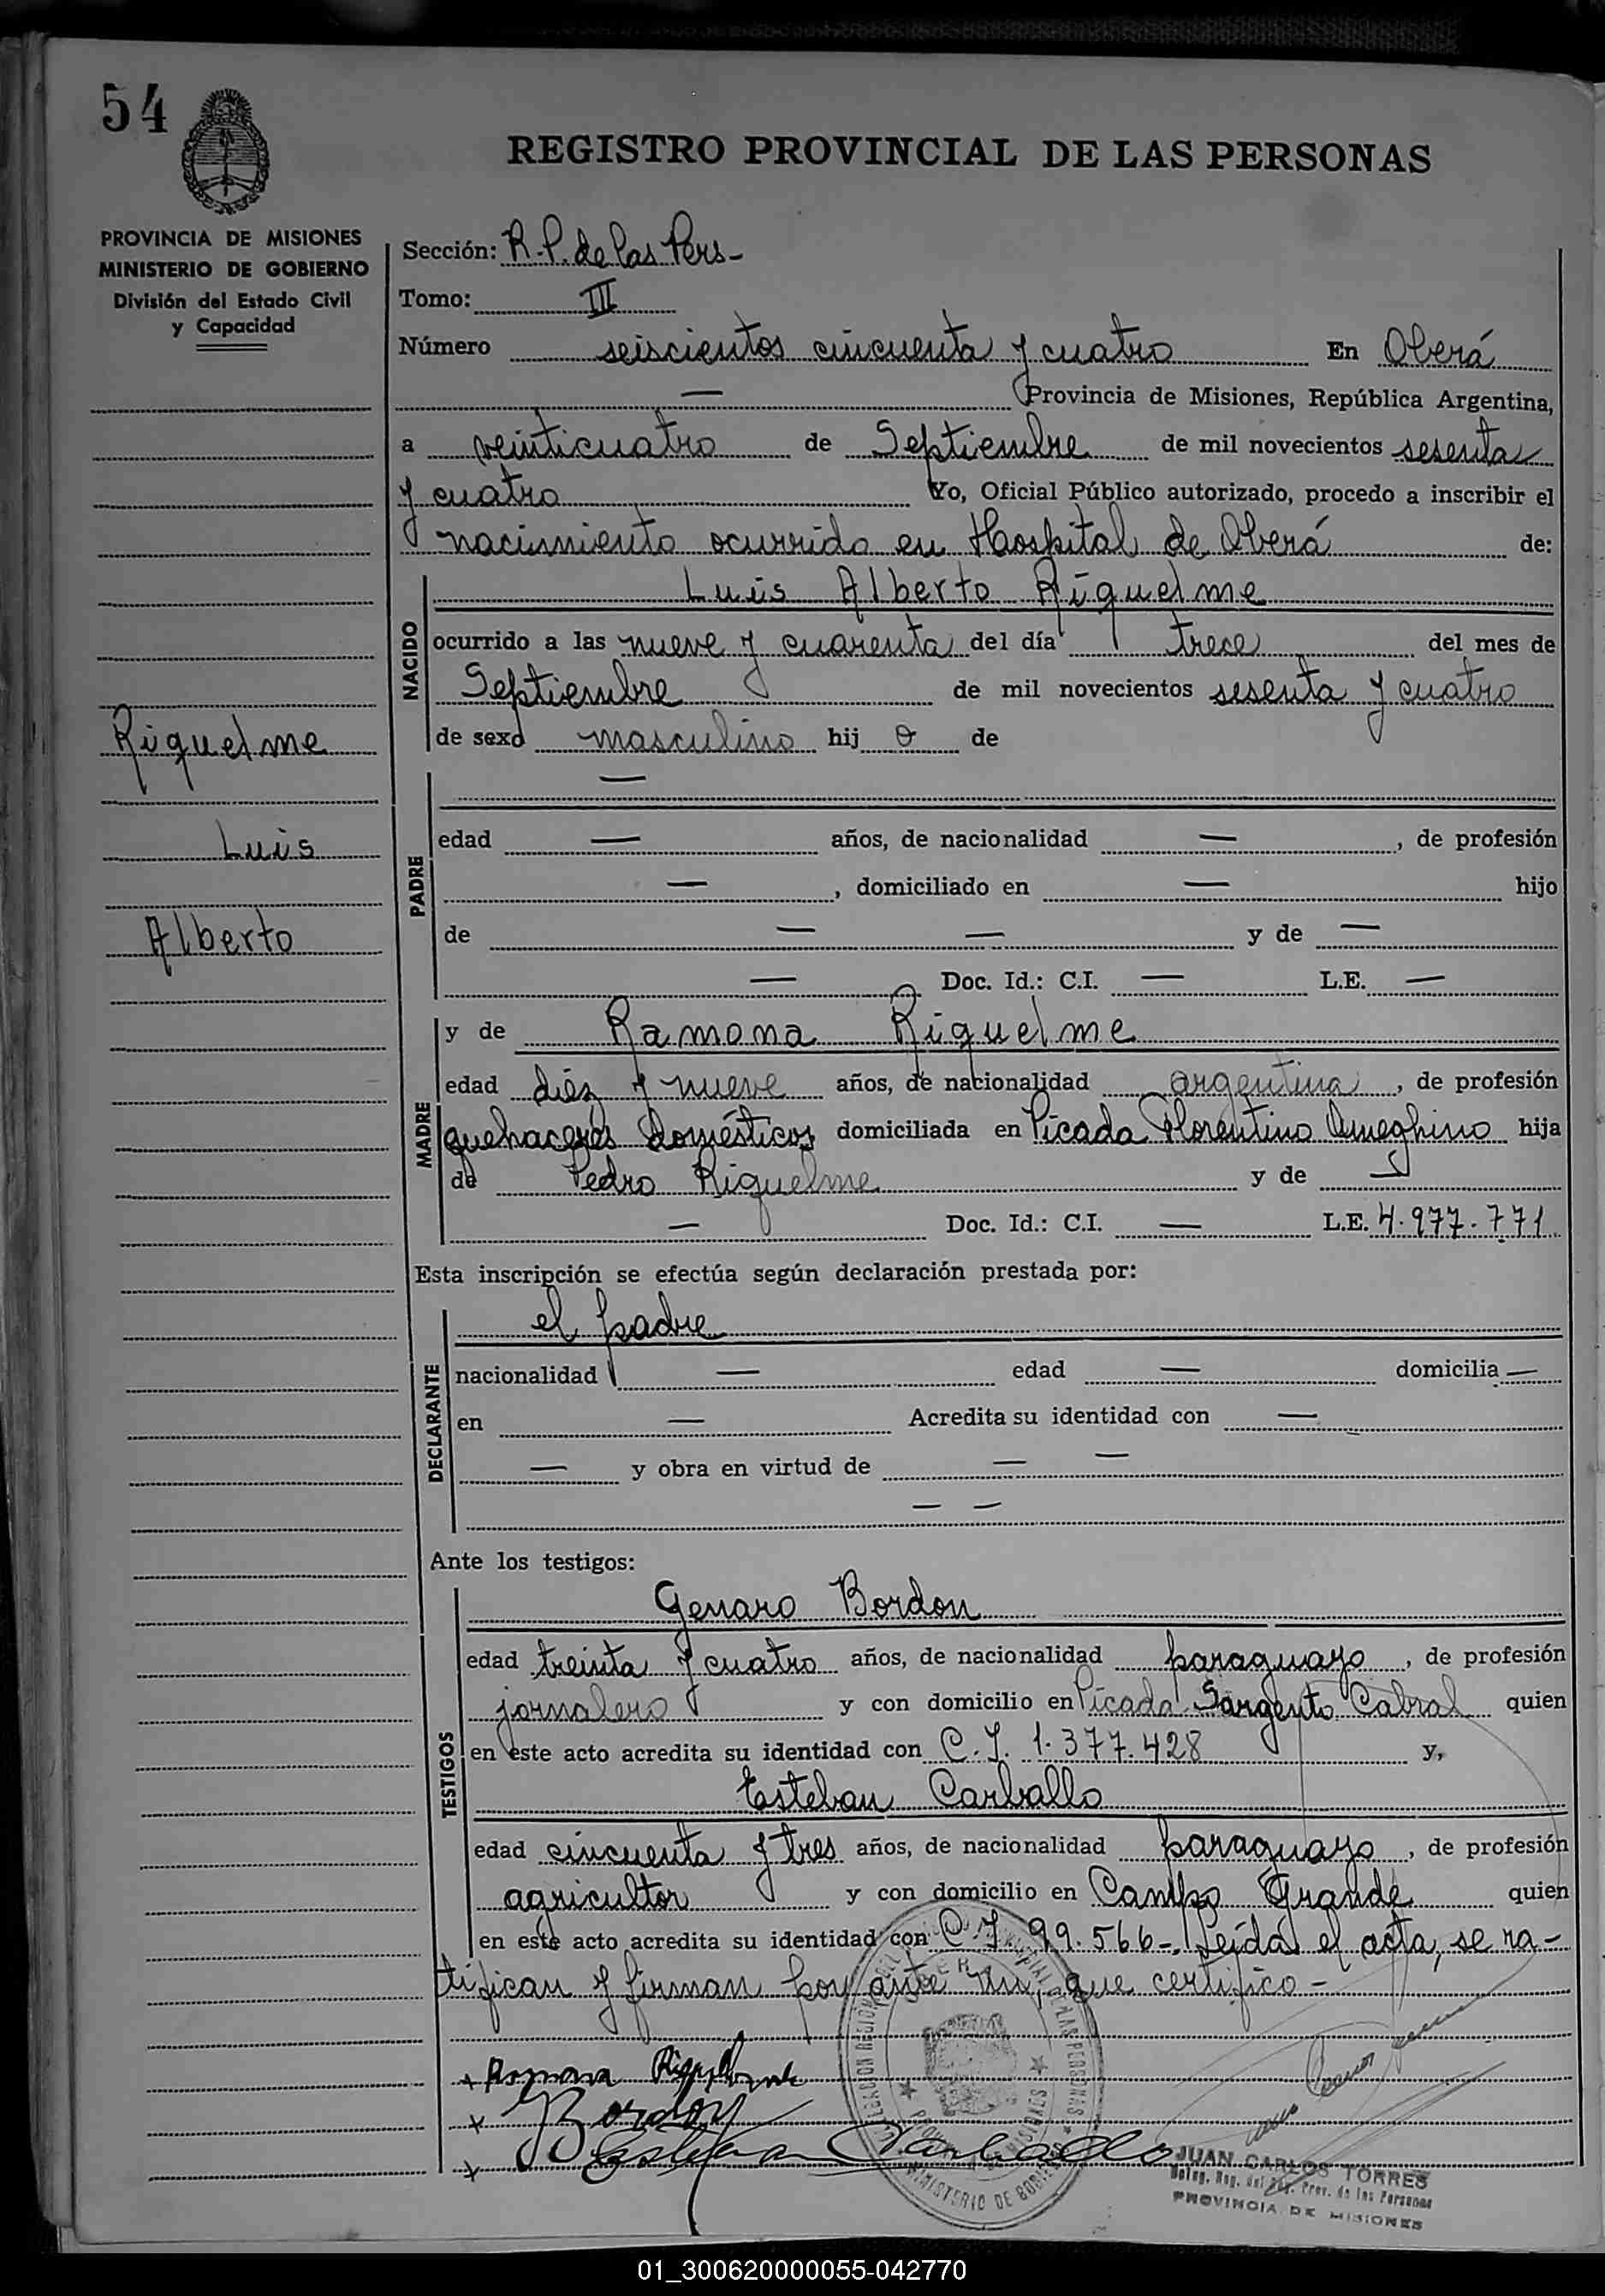 54
REGISTRO PROVINCIAL DE LAS PERSONAS
PROVINCIA DE MISIONES
MINISTERIO DE GOBIERNO
División del Estado Civil
y Capacidad
Riquelme
Luis
Alberto
Sección: R.P. de las Pers-
Tomo: III
Número seiscientos cincuenta y cuatro En Oberá
— Provincia de Misiones, República Argentina,
a veinticuatro de Septiembre de mil novecientos sesenta
y cuatro Yo, Oficial Público autorizado, procedo a inscribir el
nacimiento ocurrido en Hospital de Oberá de:
NACIDO
Luis Alberto Riquelme
ocurrido a las nueve y cuarenta del día trece del mes de
Septiembre de mil novecientos sesenta y cuatro
de sexo masculino hij o de
PADRE
—
edad — años, de nacionalidad — , de profesión
— , domiciliado en — hijo
de — — y de —
— Doc. Id.: C.I. — L.E. —
MADRE
y de Ramona Riquelme
edad diez y nueve años, de nacionalidad argentina , de profesión
quehaceres domésticos domiciliada en Picada Florentino Ameghino hija
de Pedro Riquelme y de —
— Doc. Id.: C.I. — L.E. 4.977.771
Esta inscripción se efectúa según declaración prestada por:
DECLARANTE
el padre
nacionalidad — edad — domicilia —
en — Acredita su identidad con —
— y obra en virtud de — —
— —
Ante los testigos:
TESTIGOS
Genaro Bordon
edad treinta y cuatro años, de nacionalidad paraguayo , de profesión
jornalero y con domicilio en Picada Sargento Cabral quien
en este acto acredita su identidad con C.I. 1.377.428 y,
Esteban Carballo
edad cincuenta y tres años, de nacionalidad paraguayo , de profesión
agricultor y con domicilio en Campo Grande quien
en este acto acredita su identidad con C.I 99.566-. Leída el acta, se ra-
tifican y firman por ante mi, que certifico-
x Ramona Riquelme
x Bordon
x Esteban Carballo
MINISTERIO DE
JUAN CARLOS TORRES
Deleg. Reg. del Reg. Prov. de las Personas
PROVINCIA DE MISIONES
01_300620000055-042770